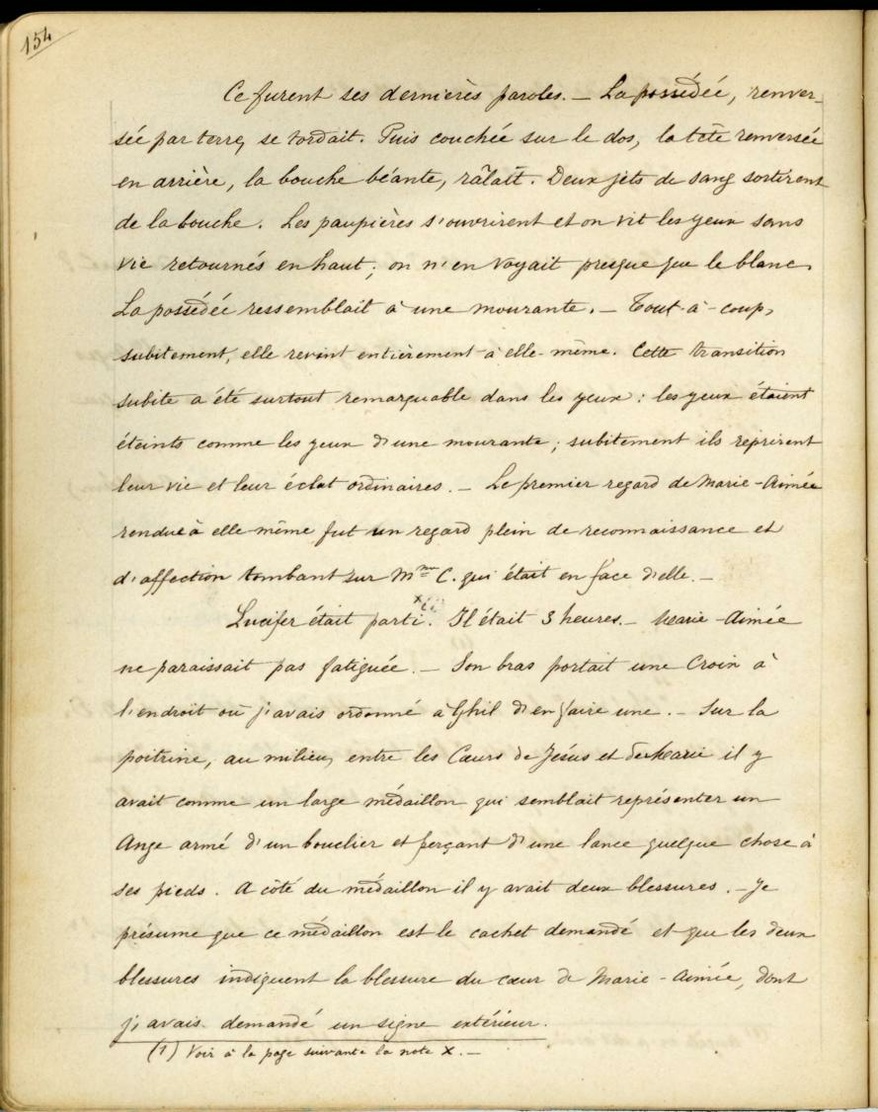 154
Ce furent ses dernières paroles. — La possédée, renver-
sée par terre, se tordait. Puis couchée sur le dos, la tête renversée
en arrière, la bouche béante, râlait. Deux jets de sang sortirent
de la bouche. Les paupières s'ouvrirent et on vit les yeux sans
vie retournés en haut ; on n'en voyait presque que le blanc.
La possédée ressemblait à une mourante. — Tout-à-coup,
subitement, elle revint entièrement à elle-même. Cette transition
subite a été surtout remarquable dans les yeux : les yeux étaient
éteints comme les yeux d'une mourante ; subitement ils reprirent
leur vie et leur éclat ordinaires. — Le premier regard de Marie-Aimée
rendue à elle-même fut un regard plein de reconnaissance et
d'affection tombant sur Mme C. qui était en face d'elle. —
Lucifer était parti x. Il était 3 heures. — Marie-Aimée
ne paraissait pas fatiguée. — Son bras portait une Croix à
l'endroit où j'avais ordonné à Ghil d'en faire une. — Sur la
poitrine, au milieu, entre les Cœurs de Jésus et de Marie il y
avait comme un large médaillon qui semblait représenter un
Ange armé d'un bouclier et perçant d'une lance quelque chose à
ses pieds. A côté du médaillon il y avait deux blessures. — Je
présume que ce médaillon est le cachet demandé et que les deux
blessures indiquent la blessure du cœur de Marie-Aimée, dont
j'avais demandé un signe extérieur.
(1) Voir à la page suivante la note x. —